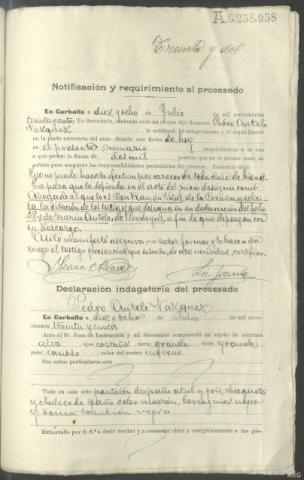 A.6.258.958
Treinta y dos
Notificación y requirimiento al procesado
En Carballo a diez y ocho de Julio de mil novecientos
treinta y cuatro Yo Secretario, teniendo ante mi al que dijo llamarse Pedro Antelo
Vazquez le notifiqué, leí integramente y di copia literal
en la parte necesaria del auto dictado con fecha de hoy
en el presente sumario y requiriéndole a la vez
a que preste la fianza de dos mil pesetas que en el mismo auto se
señala para asegurar las responsabilidades pecuniarias del procedimiento. Enterado dijo:
que no puede hacerla efectiva por carecer de toda clase de bienes
y para que le defienda en el acto del juicio designa como
Abogado al que lo es Don
ta la citación de los testigos que designa en su declaración del folio
28 y de Maria Antelo, de a fin de que depongan en
su descargo.
Así lo manifestó asegura no saber firmar y lo hace a su
ruego el testigo presencial que
Declaración indagatoria del procesado
Pedro Antelo Vazquez
En Carballo a diez y ocho de Julio de mil nove-
cientos treinta y cuatro
Ante el Sr. Juez de Instrucción y mi Secretario compareció un sujeto de estatura
alta, ojos castaños nariz grande, boca grande,
pelo canoso color del rostro moreno
Sus señas particulares son:
Viste en este acto pantalón de paño azul y gris, chaqueta
y chaleco de paño color marrón, borceguies negros
y boina también negra
Exhortado por S. S.ª a decir verdad y a contestar clara y categóricamente a las pre-
ARG